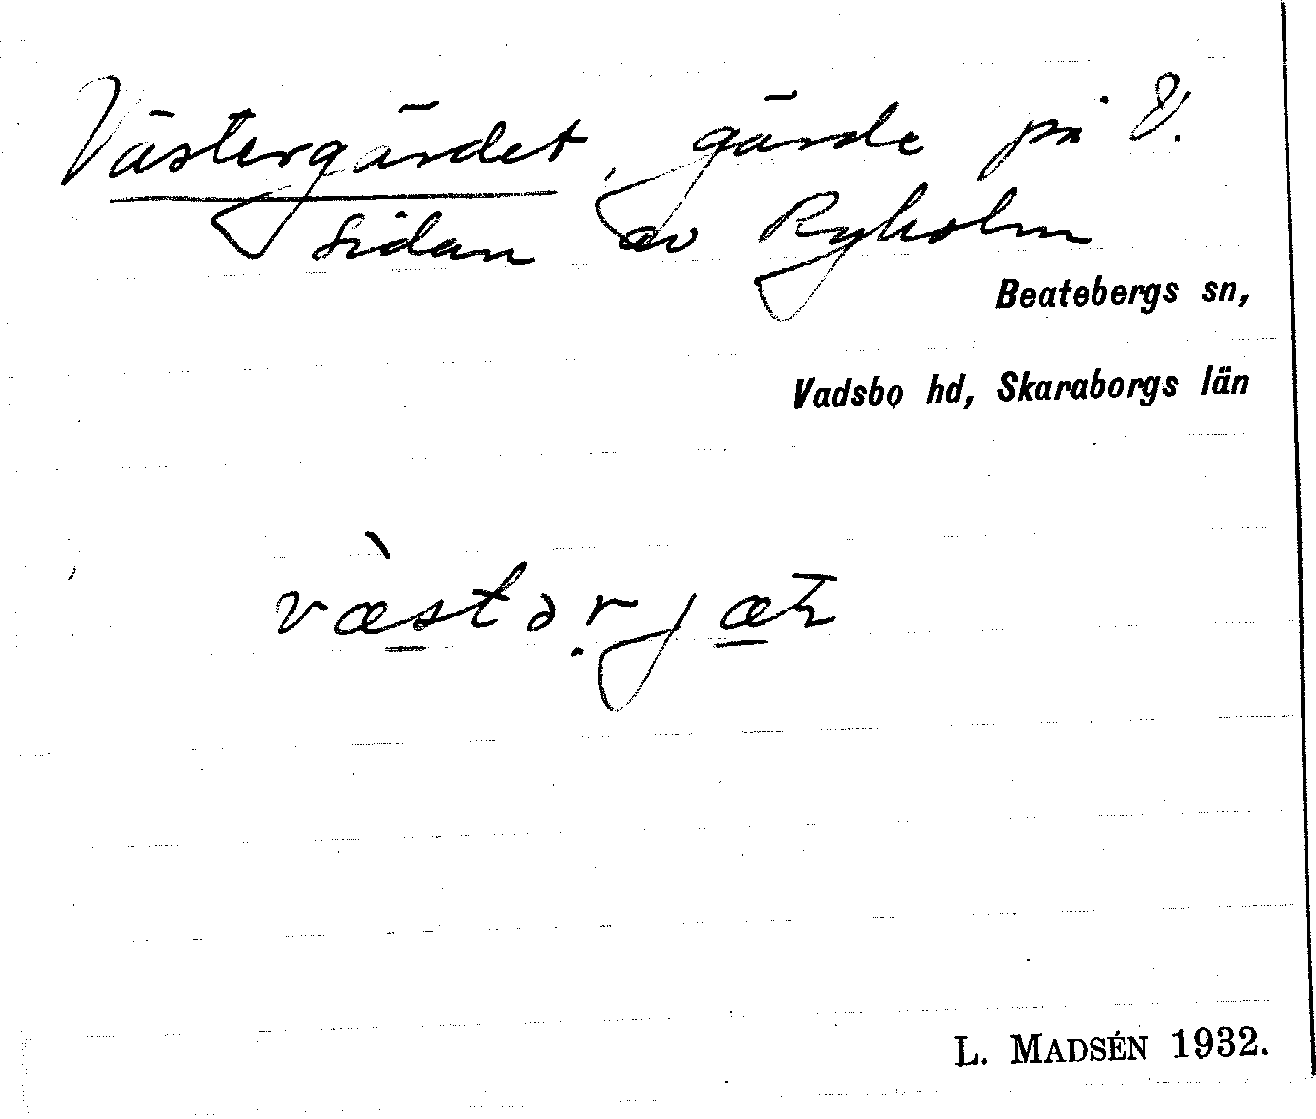 Västergärdet, gärde på V.
sidan av Ryholm
Beatebergs sn,
Vadsbo hd, Skaraborgs län
L. MADSÉN 1932.